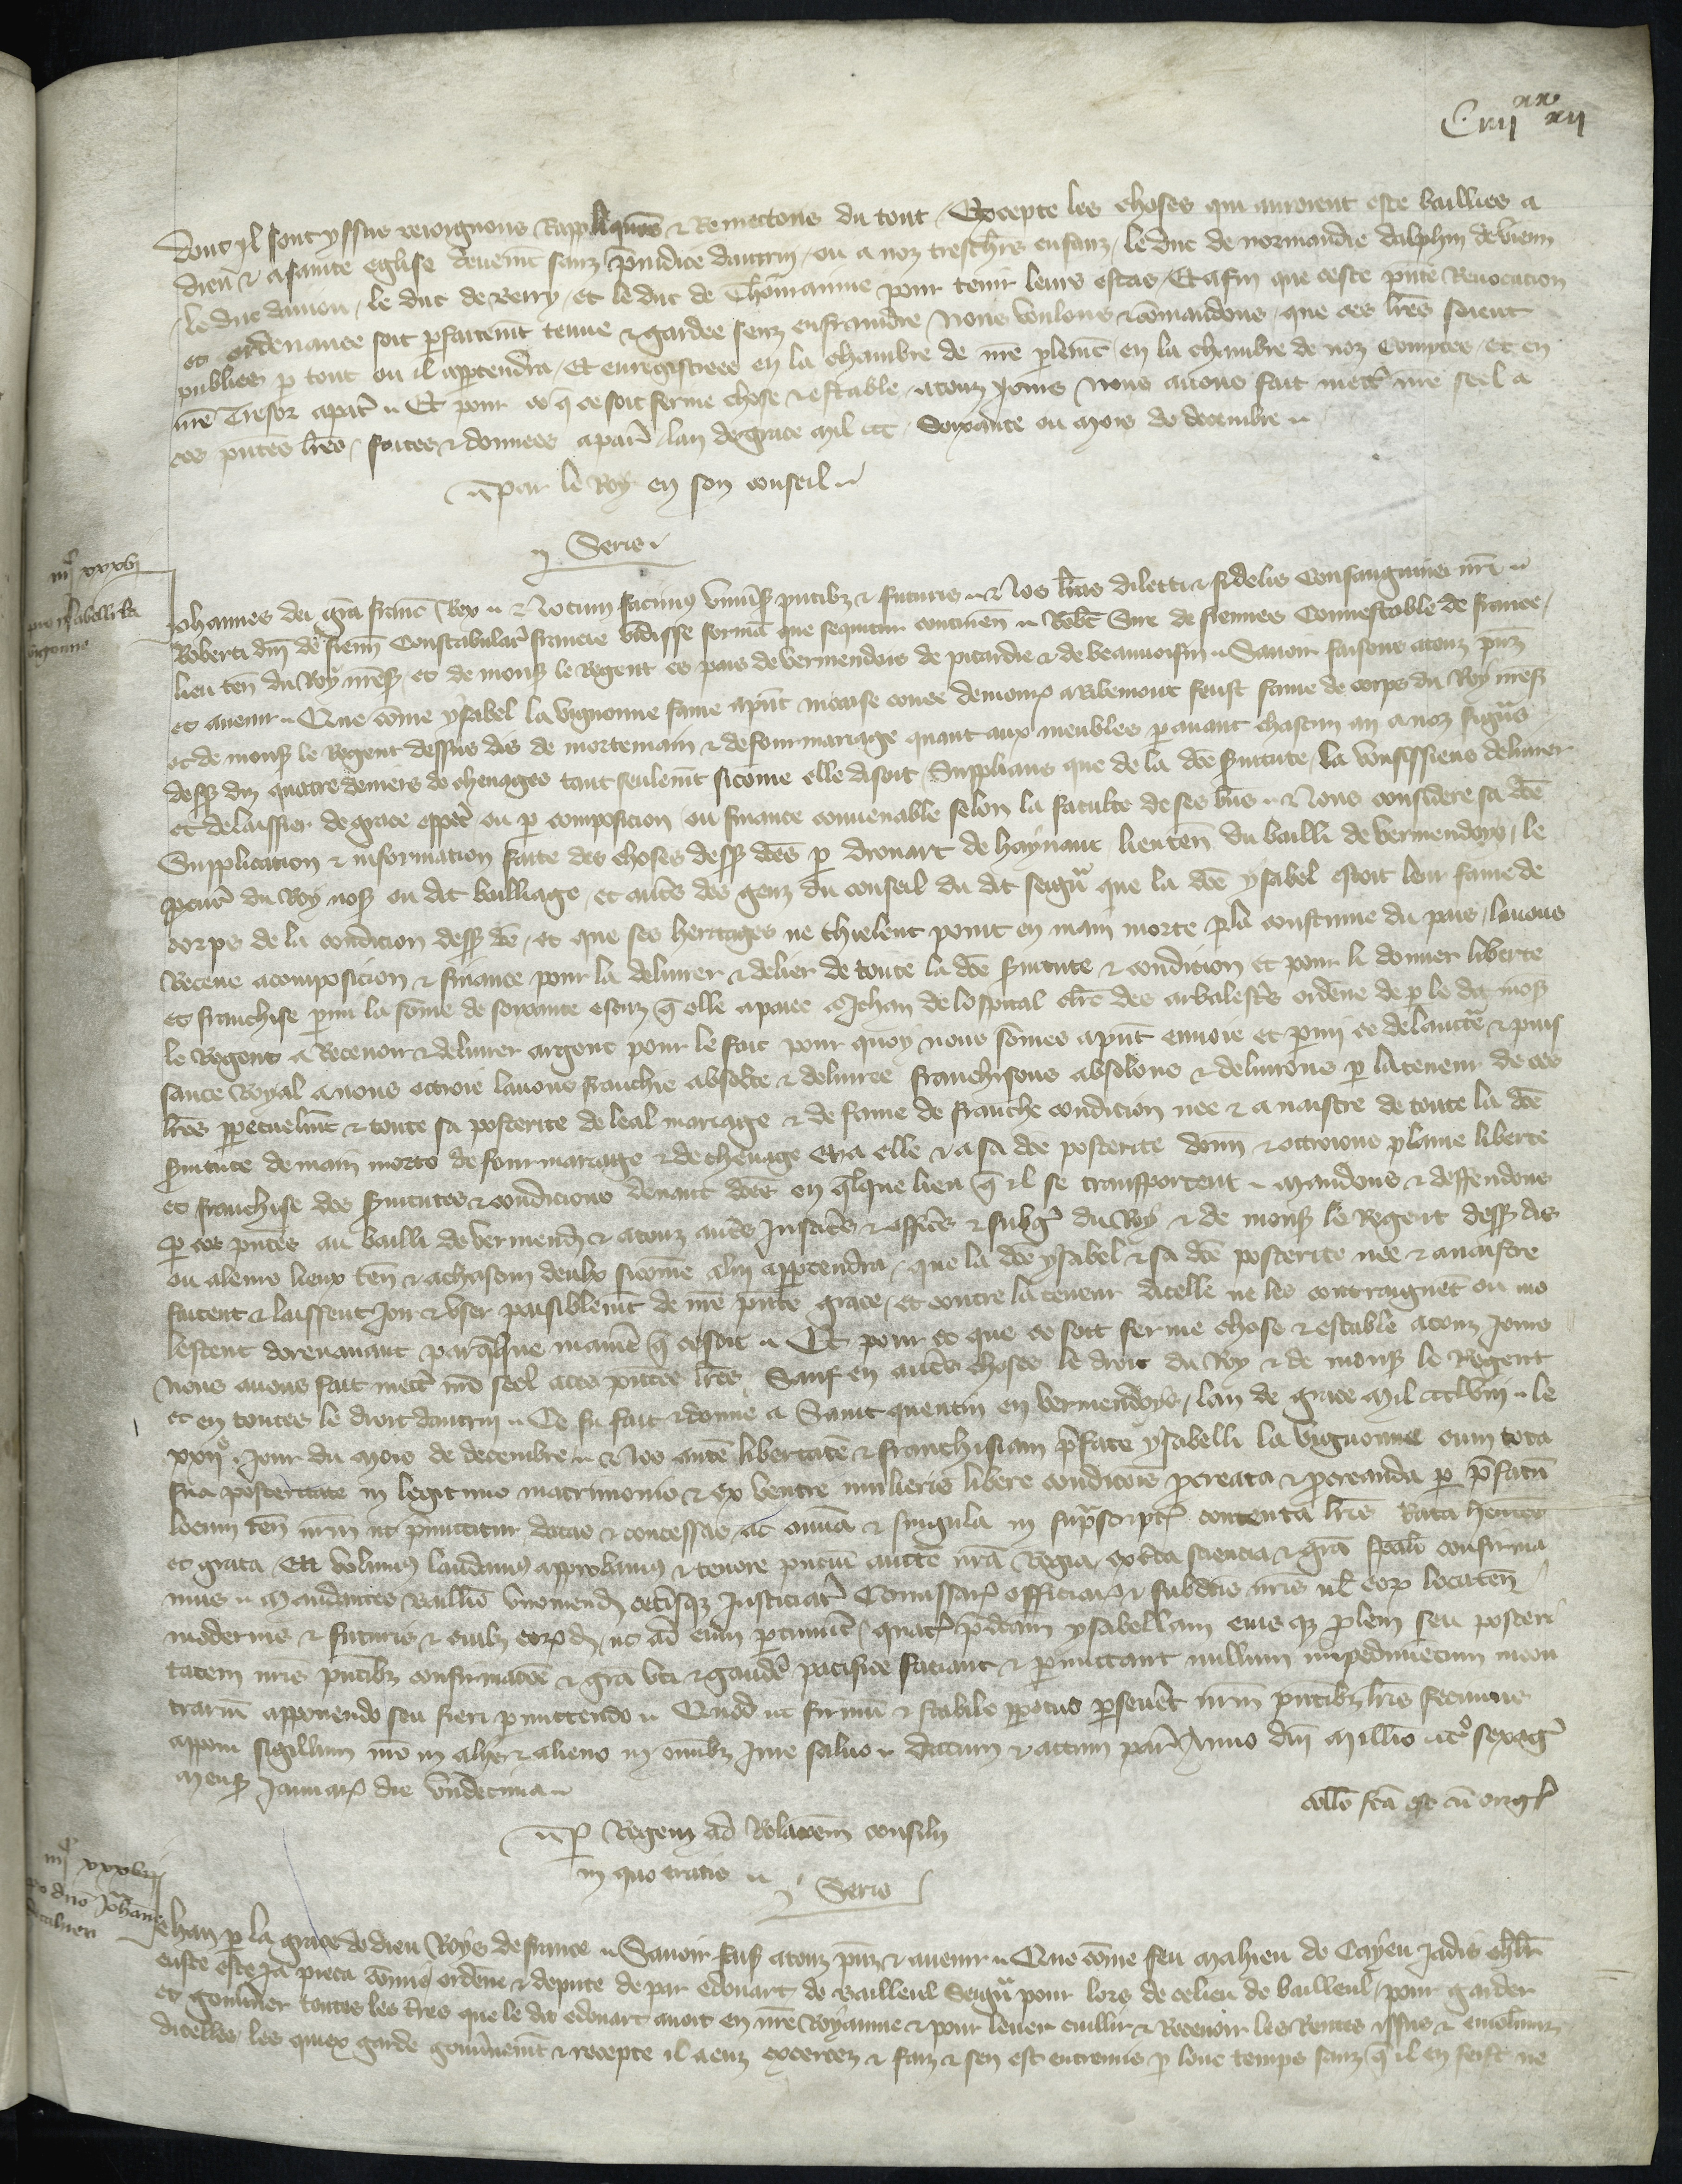 C iiijxx xij
dont yl sont yssus reioignons Rappliquons & Remettons du tout / Excepte les choses qui auroient este baillies a
dieu & a sainte eglise deuemt sanz preiudice dautrui / ou a noz treschrs enfanz / le duc de normandie dalphin de vienn
/ le duc daniou / le duc de Berry / et le duc de Thouraine pour tenir leurs estas / Et afin que ceste pnte Reuocation
et ordenance soit pfaitemt tenue & gardee senz enfraindre / Nous voulons & comandons / que ces lres soient
publiees p tout ou il appartendra / Et enregistrees en la chambre de nre plemt en la chambre de noz Comptes / et en
nre Tresor a par / Et pour ce q ce soit ferme chose & estable / a touz jours / Nous auons fait mettr nre seel a
ces pntes lres / faites & donnees a par / lan de grace mil ccc Soixante ou mois de decembre
Par le Roy en son conseil
Serie
iiijc xxxvj
pro ysabelli la
vigonne
Johannes dei gra franc Rex Notum facimus vniusis pntibz & futuris Nos lras dilecti & fidelis Consanguinei nri
Roberti dni de fienn Constabular francie vidisse formam que sequitur continen Robt Sire de fiennes Connestable de france /
lieu ten du Roy nres et de mons le Regent es pais de vermendois de picardie & de beauuoisin Sauoir faisons a touz pnz
et auenir Que come ysabel la vignonne fame apnt moaise conee demour a Riblemont feust fame de corps du Roy nres
et de mons le Regent dessus dis de mortemain & de fourmariage quant aux meubles p auant chascun an a noz signrs
dess diz quatre deniers de cheuages tant seulemt sicome elle disoit / Suppliant que de la dce suitute / la voulsissiens deliurer
et delaissier de grace esppal ou p composicion ou finance conuenable selon la faculte de ses biens Nous considere sa dce
Supplication & information faite des choses dess dces p drouart de haynaut lieuten du bailli de vermendoys / le
procur du Roy nos ou dit bailliage / et autrs des genz du conseil du dit seignr que la dce ysabel estoit leur fame de
corps de la condicion dess dce / et que ses heritages ne chieent point en main morte p la coustume du pais / lauons
Receue a composicion & finance pour la deliurer & delier de toute la dce suitute & condicion et pour li donner liberte
et franchise pmi la some de soixante escuz q elle a paiee a Jehan de lospital clerc des arbalestrs ordene de p le dit mos
le Regent a Receuoir & deliurer argent pour le fait pour quoy nous somes apnt enuoie et pmi ce de lauctorite & puis
sance Royal a nous ottroie lauons franchie absolte & deliuree franchissons absolons & deliurons p la teneur de ces
lres ppetuelmt & toute sa posterite de leal mariage & de fame de franche condicion nee & a naistre de toute la dce
suitute de main morte de fourmariage & de cheuage Et a elle & a sa dce posterite donn & ottroions plaine liberte
et franchise des suitutes & condicions deuant dces en qlque lieu q il se transportent Mandons & deffendons
p ces pntes au bailli de vermend & a touz autrs Justicrs & officrs & subgez du Roy & de mons le Regent dess dis
ou a leurs lieux ten & a chascun deulx sicome a lui appartendra / que la dce ysabel & sa dce posterite nee & a naistre
facent & laissent Joir & vser paisiblemt de nre pnte grace / et contre la teneur dicelle ne les contraignet ou mo
lestent dorenauant par qlque manie q ce soit Et pour ce que ce soit ferme chose & estable a touz Jours
nous auons fait mettr nre seel a ces pntes lres Sauf en autrs choses le droit du Roy & de mons le Regent
et en toutes le droit dautrui Ce fu fait & donne a Saint quentin en vermendoys / lan de grace Mil ccclviij le
xxije Jour du mois de decembre Nos autem libertatem & franchisiam pfate ysabelli la vignonne cum tota
sua posteritate in legitimo matrimonio & ex ventre mulieris libere condicois pcreata & pcreanda p pfatum
locum ten nrm ut pmittitur datas & concessas ac omnia & singula in suprascript contenta lris Rata hentes
et grata Ea volumus laudamus approbamus & tenore pntium aucte nra Regia ex cta sciencia & gra speali confirma
mus Mandantes Baillio viromend cetisq Justiciar Comissar officiar & subditis nris ul eor locaten
modernis & futuris & cuibz eord / ut ad eum ptinuit / quatr pdcam ysabellam eius qz prolem seu posteri
tatem nris pntibz confirmatoe & gra vti & gaude pacifice faciant & pmittant nullum impedimetum in con
trarium apponendo seu fieri pmittendo Quod ut firmum & stabile ppetuo pseueret nrm pntibz lris fecimus
apponi sigillum nro in alijs & alieno in omibz Jure saluo Datum & actum par Anno dni Millio ccco sexag
Mens Januar die vndecima
collo fca est cu orig
Per Regem ad Relacoem consilij
in quo eratis
Serie
iiijc xxxvij
pro dno Johan
de caluen
Jehan p la grace de dieu Roys de france Sauoir faiss a touz pnz & auenir Que come feu Mahieu de Cayeu Jadis chlr
eust este Ja pieca comis ordene & depute de par edouart de Bailleul Seignr pour lors de ce lieu de bailleul / pour garder
et gouuner toutes les tres que le dit edouart auoit en nre Royaume & pour leuer cuillir & Receuoir les Rentes issues & emolumz
dicelles / les quiex garde gouunemt & recepte il a euz exercez & faiz & sen est entremis p lonc temps sanz q il en feist ne